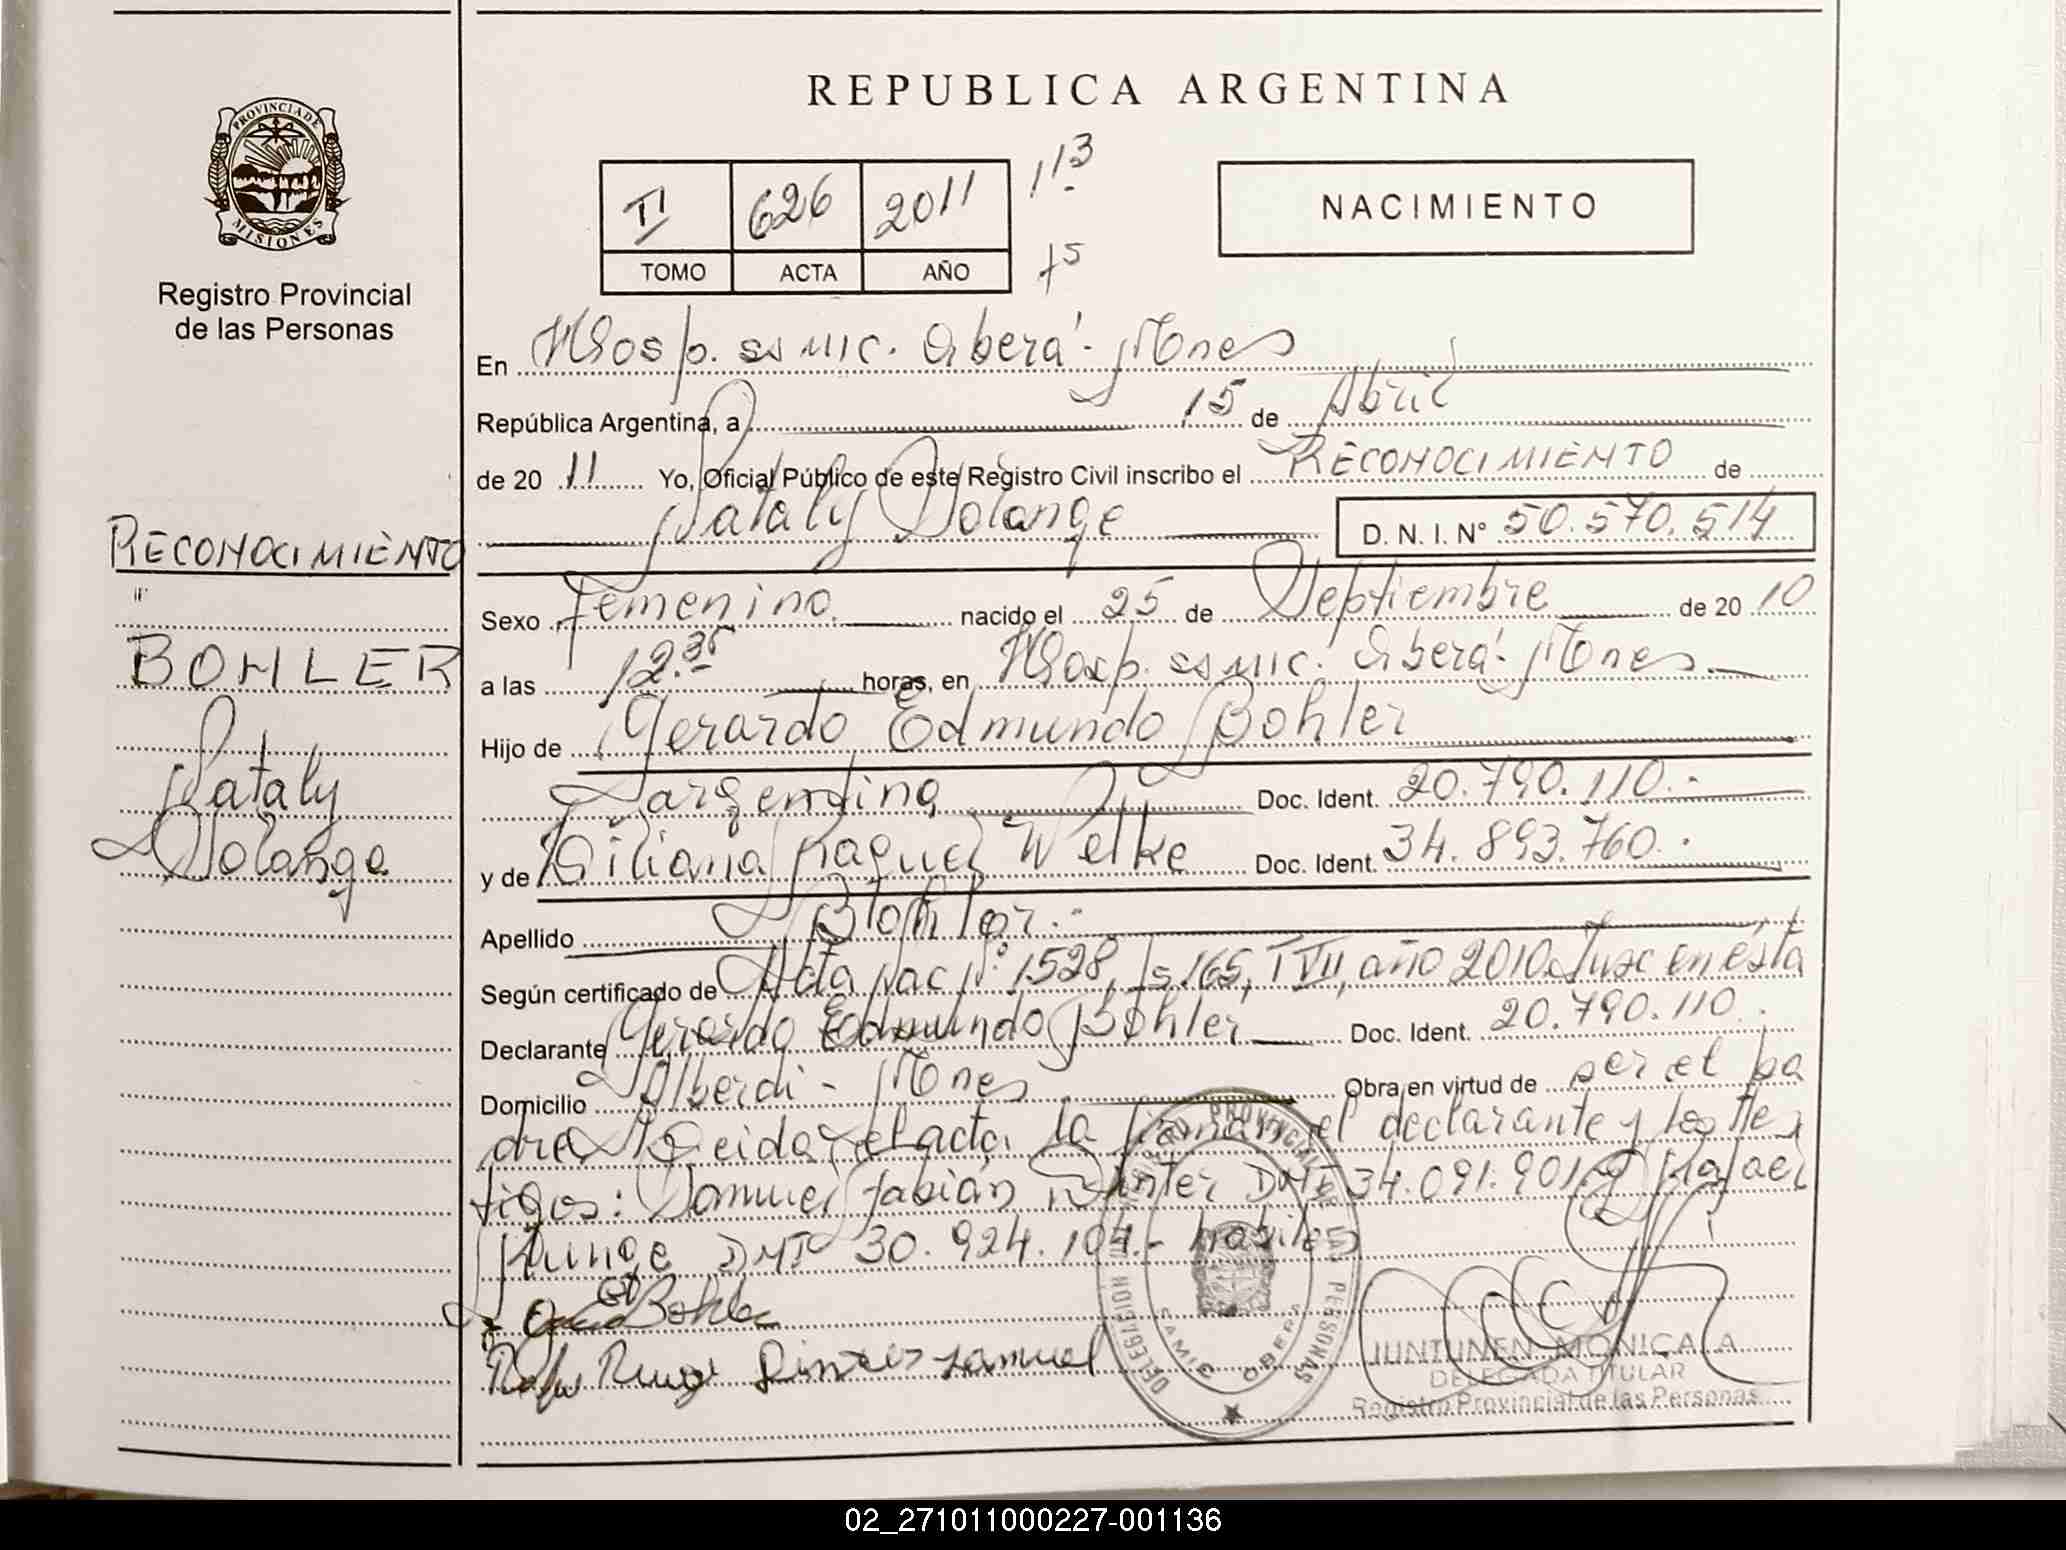 PROVINCIA DE
MISIONES
Registro Provincial
de las Personas
RECONOCIMIENTO
BOHLER
Nataly
Solange
REPUBLICA ARGENTINA
II 626 2011 113
TOMO ACTA AÑO
NACIMIENTO
En Hosp. SAMIC. Oberá - Mnes
República Argentina, a 15 de Abril
de 20 11 Yo, Oficial Público de este Registro Civil inscribo el RECONOCIMIENTO de
Nataly Solange D. N. I. Nº 50.570.514
Sexo Femenino nacido el 25 de Septiembre de 20 10
a las 12.35 horas, en Hosp. SAMIC. Oberá - Mnes
Hijo de Gerardo Edmundo Bohler
argentino Doc. Ident. 20.790.110.-
y de Liliana Raquel Welke Doc. Ident. 34.893.760.-
Apellido Bohler.-
Según certificado de Acta Nac Nº 1528, Fs. 165, T VII, año 2010. Insc en esta
Declarante Gerardo Edmundo Bohler Doc. Ident. 20.790.110
Domicilio Alberdi - Mnes Obra en virtud de ser el pa
dre. Leida el acta, la firman el declarante y los tes
tigos: Samuel Fabián DNI 34.091.901 y Rafael
Runge DNI 30.924.104.- habiles
Bohler
Runge Samuel
REGISTRO PROVINCIAL DE LAS PERSONAS
DELEGACION
SAMIC OBERA
JUNTUNEN MONICA A.
DELEGADA TITULAR
Registro Provincial de las Personas
02_271011000227-001136